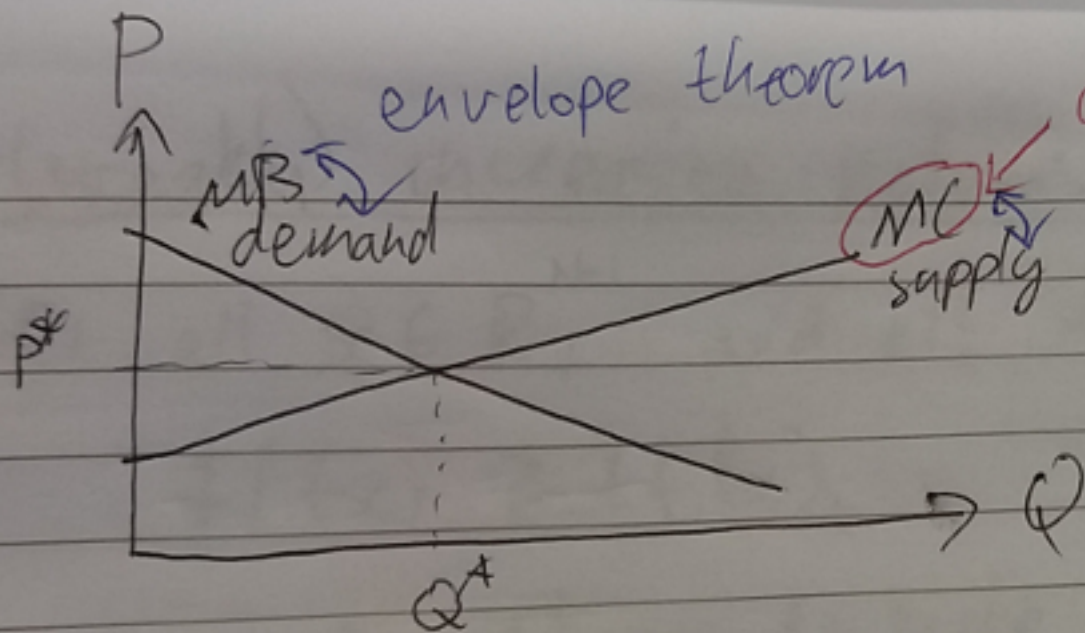 P
envelope theorem
MB
demand
MC
supply
P*
Q
Q*